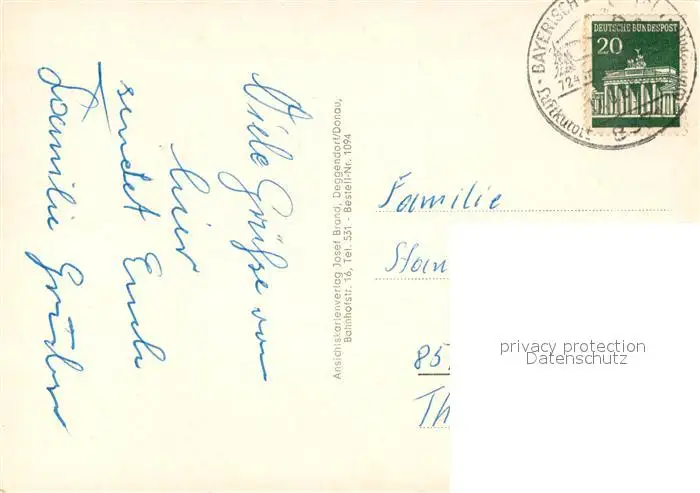 Viele Grüße von
hier
sendet Euch
Familie
Ansichtskartenverlag Josef Brand, Deggendorf/Donau,
Bahnhofstr. 16, Tel. 531 - Bestell-Nr. 1094
BAYERISCH
724
Luftkurort
DEUTSCHE BUNDESPOST
20
Familie
Stan
85
Th
privacy protection
Datenschutz